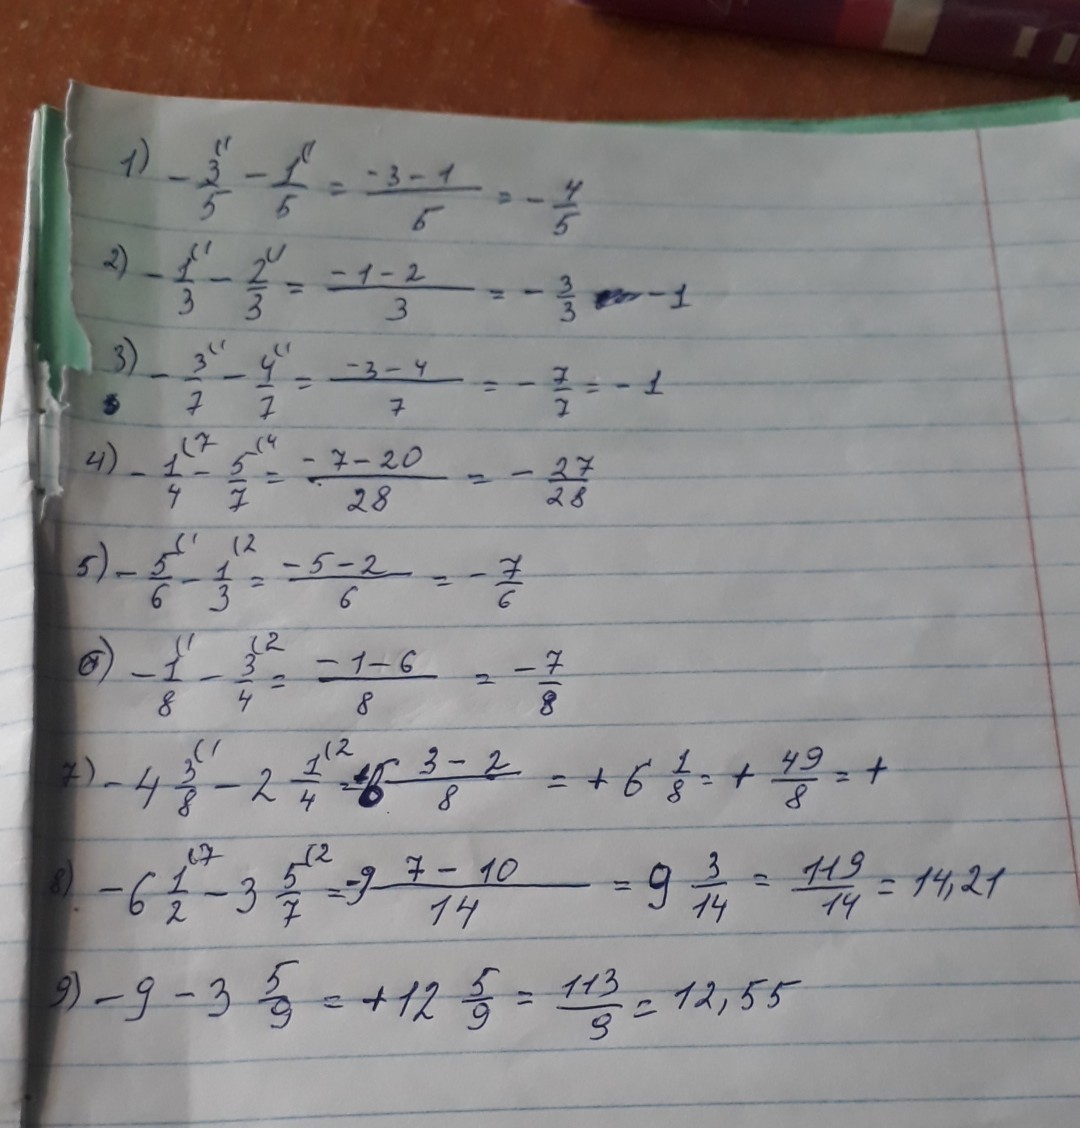 1) - 3/5 (1 - 1/5 (1 = -3-1/5 = - 4/5
2) - 1/3 (1 - 2/3 (1 = -1-2/3 = - 3/3 -1
3) - 3/7 (1 - 4/7 (1 = -3-4/7 = - 7/7 = - 1
4) - 1/4 (7 - 5/7 (4 = -7-20/28 = - 27/28
5) - 5/6 (1 - 1/3 (2 = -5-2/6 = - 7/6
6) - 1/8 (1 - 3/4 (2 = -1-6/8 = - 7/8
7) - 4 3/8 (1 - 2 1/4 (2 = +6 3-2/8 = + 6 1/8 = + 49/8 = +
8) - 6 1/2 (7 - 3 5/7 (2 = -9 7-10/14 = 9 3/14 = 119/14 = 14,21
9) - 9 - 3 5/9 = +12 5/9 = 113/9 = 12,55